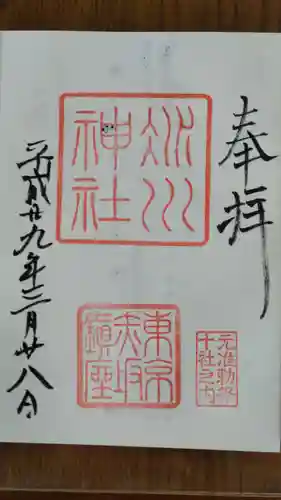 奉拝
氷川
神社
東京
赤坂
鎮座
元准勅祭
十社之内
平成廿九年三月廿八日